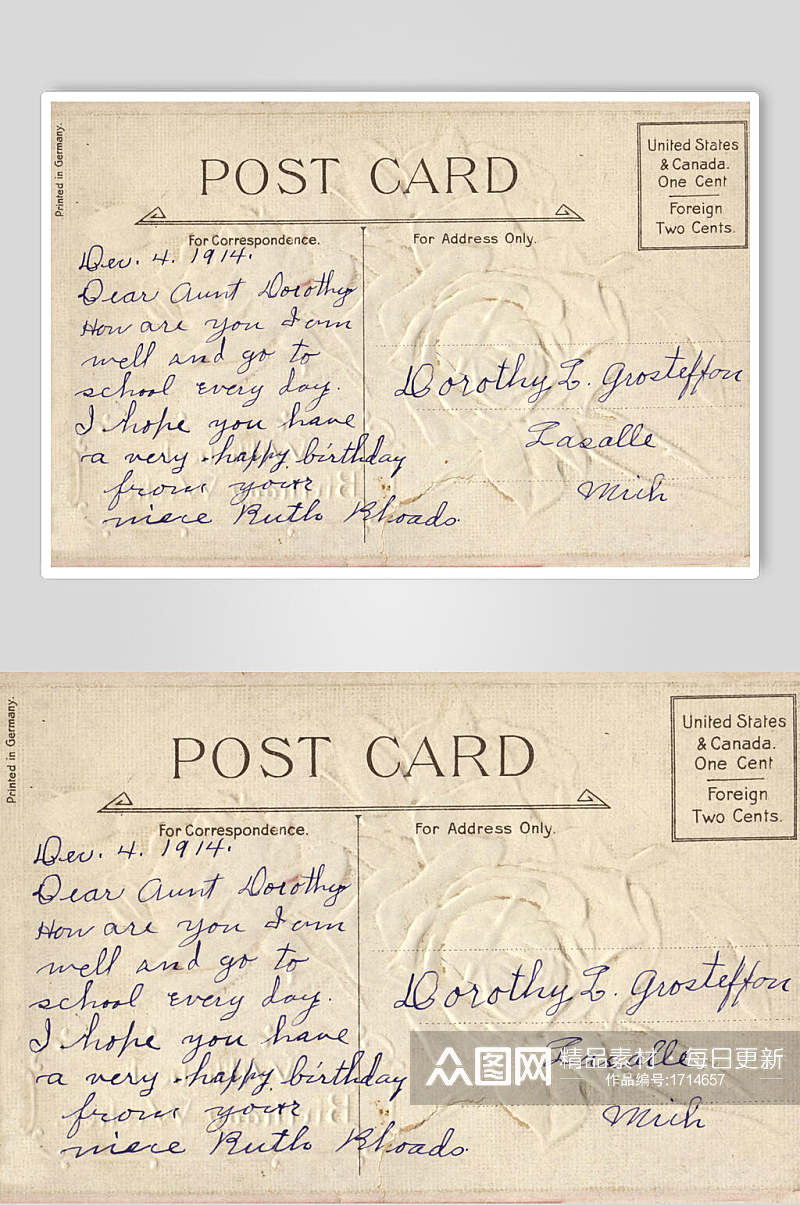 Printed in Germany.
POST CARD
United States
& Canada.
One Cent
Foreign
Two Cents.
For Correspondence.
For Address Only.
Dec. 4. 1914.
Dear Aunt Dorothy
How are you I am
well and go to
school every day.
I hope you have
a very happy birthday
from your
niece Ruth Rhoads.
Dorothy L. Grosteffon
Lasalle
Mich
Printed in Germany.
POST CARD
United States
& Canada.
One Cent
Foreign
Two Cents.
For Correspondence.
For Address Only.
Dec. 4. 1914.
Dear Aunt Dorothy
How are you I am
well and go to
school every day.
I hope you have
a very happy birthday
from your
niece Ruth Rhoads.
Dorothy L. Grosteffon
Lasalle
Mich
众图网
精品素材 · 每日更新
作品编号:1714657